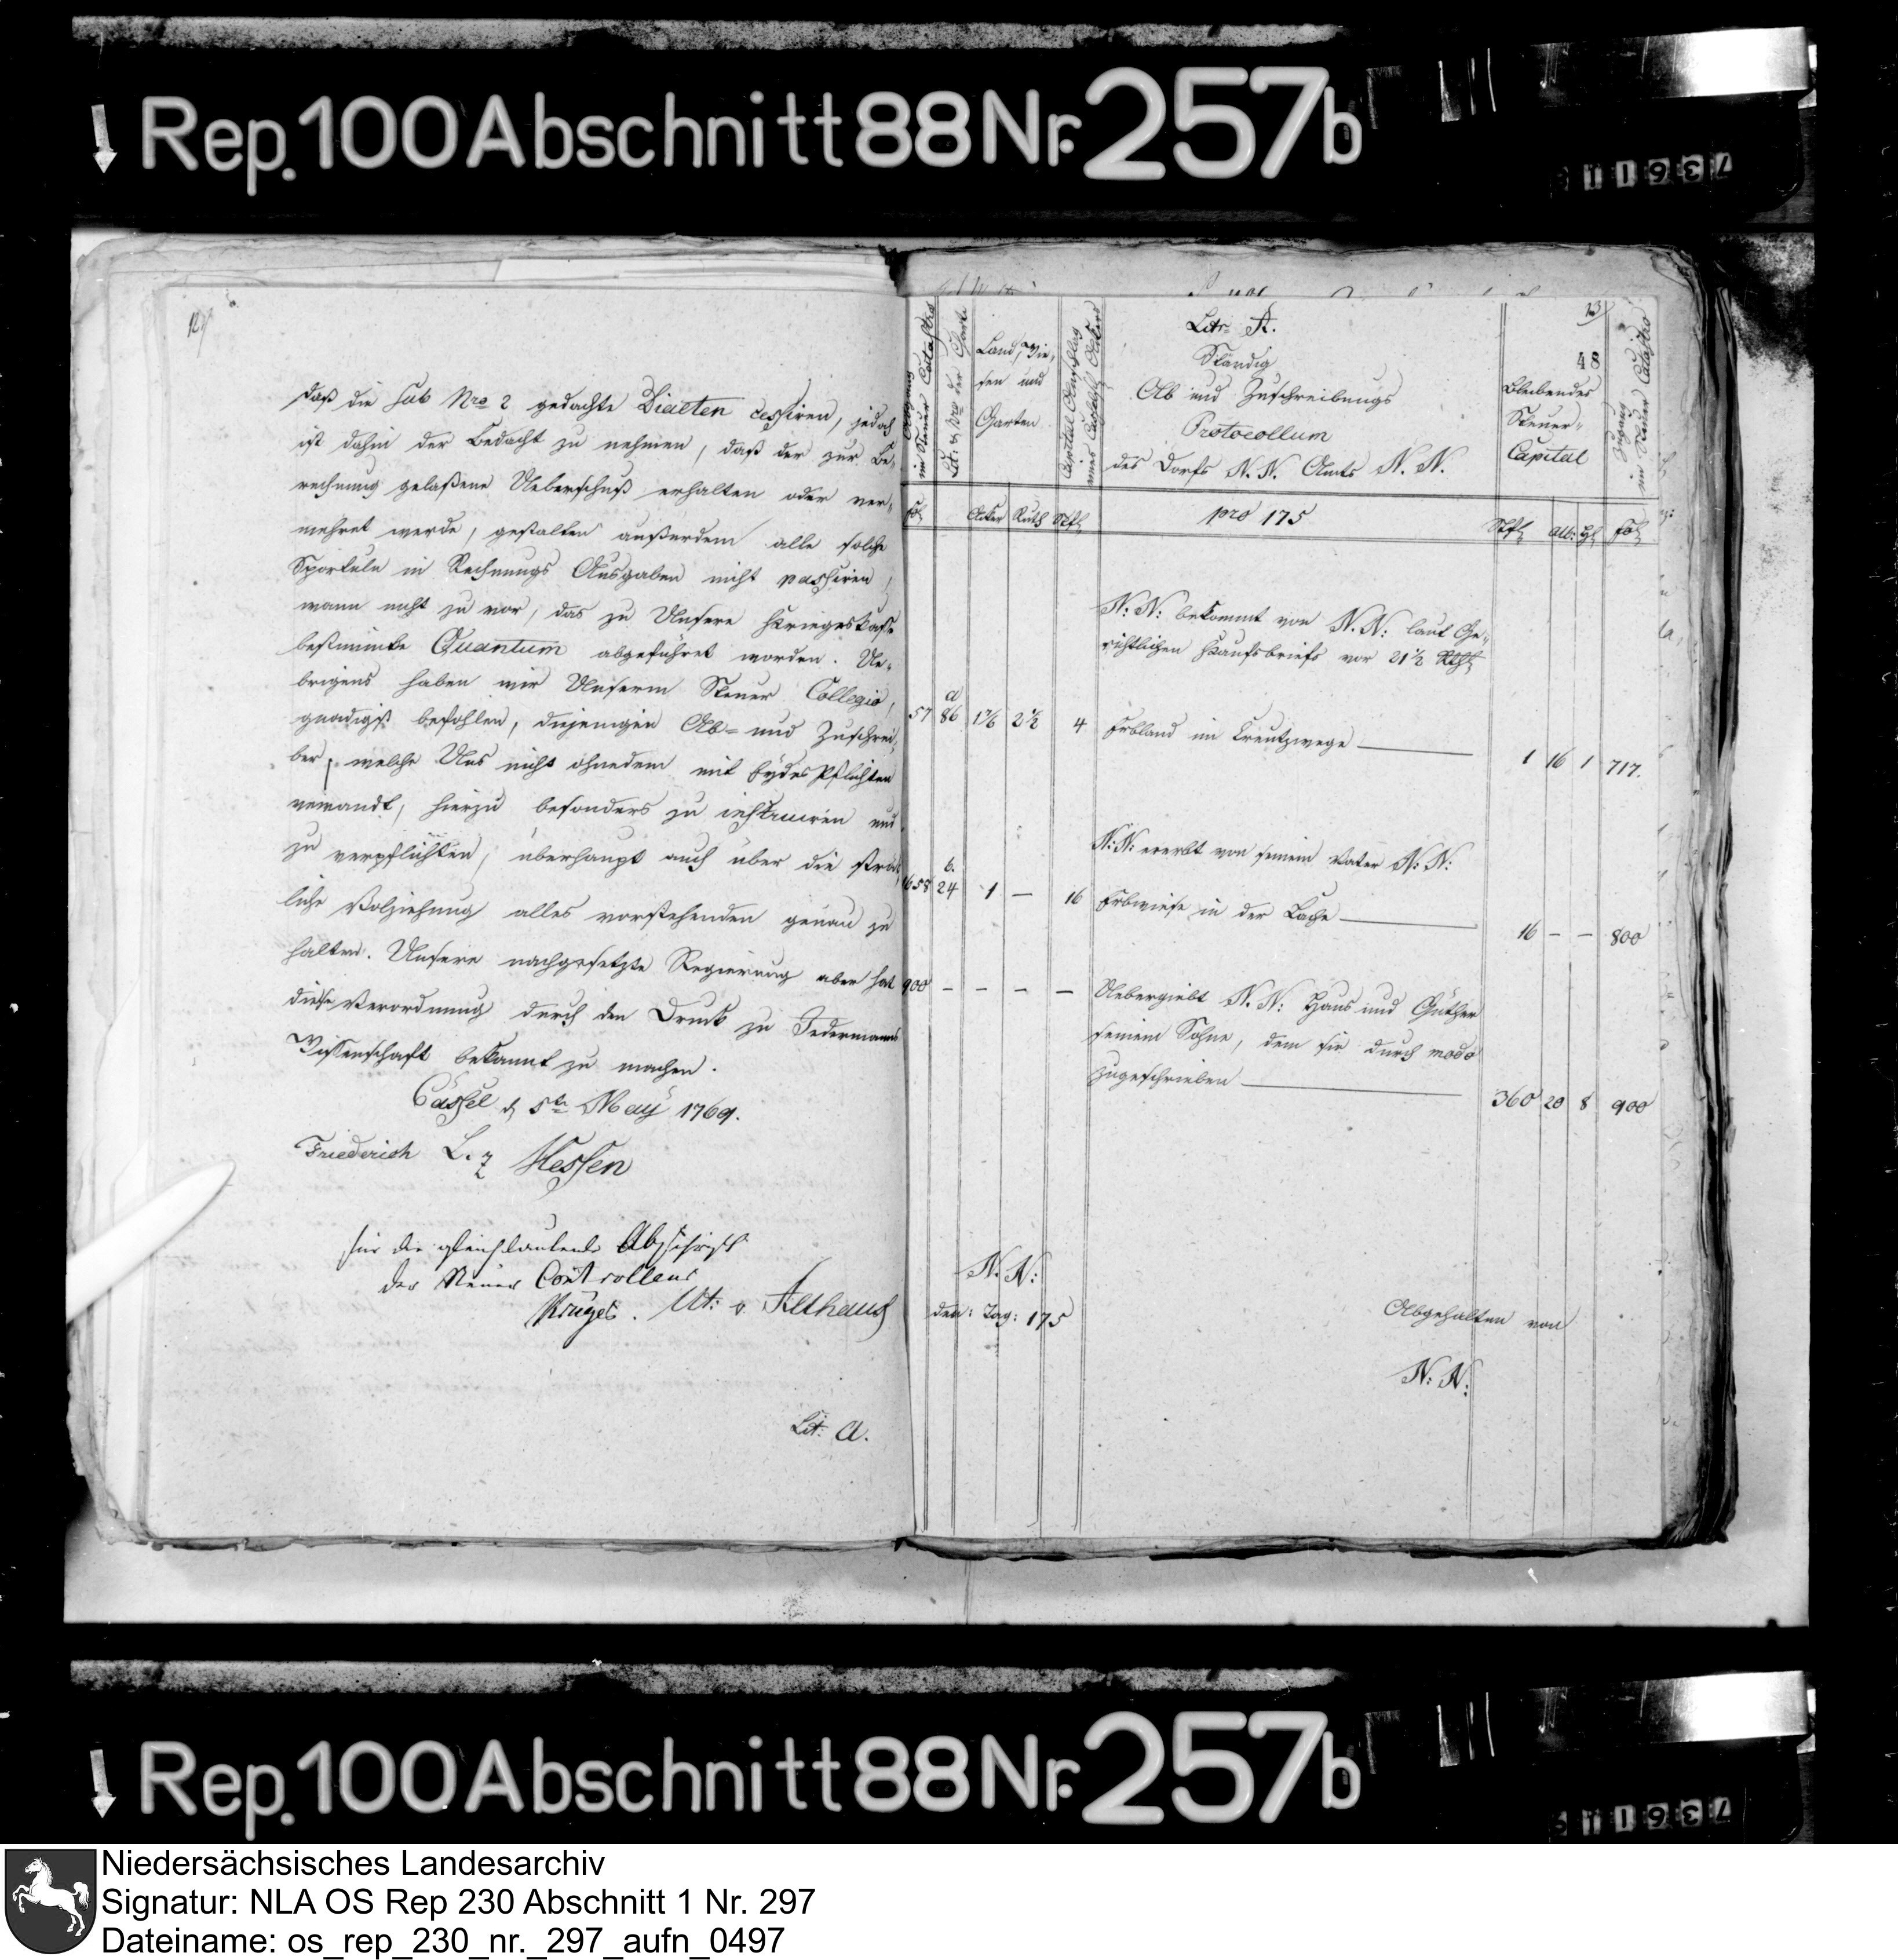 Rep. 100 Abschnitt 88 Nr. 257b
12
daß die sub Nro 2 gedachte Diaeten cessiren, jedoch
ist dahin der Bedacht zu nehmen, daß der zur Be-
rechnung gelaßene Ueberschuß erhalten oder ver-
mehret werde, gestalten außerdem alle solche
Sportuln in Rechnungs Ausgaben nicht passiren,
wann nicht zu vor, das zu Unsere Kriegeskasse
bestimmte Quantum abgeführet worden. Ue-
brigens haben wir Unserm Steuer Collegio,
gnädigst befohlen, diejenigen Ab- und Zuschrei-
ber, welche Uns nicht ohnedem mit Eydes Pflichten
verwandt, hierzu besonders zu instruiren und
zu verpflichten, überhaupt auch über die
liche Volziehung alles vorstehenden genau zu
halten. Unsere nachgesetzte Regierung aber hat
diese Verordnung durch den Druck zu Jedermanns
Wissenschaft bekannt zu machen.
Cassel d 5te May 1769.
Friederich L. z Hessen
für die gleichlautende Abschrift
der Steuer Controlleur
Krüger. Vt: v. Althaus
Lit: A.
13
48
Litr A.
Ständig
Ab und Zuschreibungs
Protocollum
des Dorfs N. N. Amts N. N.
im Steuer Catastro
Lit: & Nro der Charte
Land, Wie-
sen und
Garten
Capital Anschlag
eines Acker
Bleibendes
Steuer-
Capital
Zugang
im Steuer Catastro
Fol Acker Ruth Rthl pro 175 Rthl alb: Hl Fol
N: N: bekommt von N. N: laut Ge-
richtlichen Kaufbriefs vor 21½ Rthl
57 a 86 1⅞ 2½ 4 Erbland im Creutzwege 1 16 1 717.
N: N: ererbt von seinem Vater N: N:
658 b. 24 1 — 16 Erbwiese in der Lache 16 — — 800
900 — — — — Uebergiebt N. N: Haus und Güther
seinem Sohne, dem sie durch modo
zugeschrieben 360 20 8 900
N. N:
den: Tag: 175
Abgehalten von
N: N:
Rep. 100 Abschnitt 88 Nr. 257b
Niedersächsisches Landesarchiv
Signatur: NLA OS Rep 230 Abschnitt 1 Nr. 297
Dateiname: os_rep_230_nr._297_aufn_0497